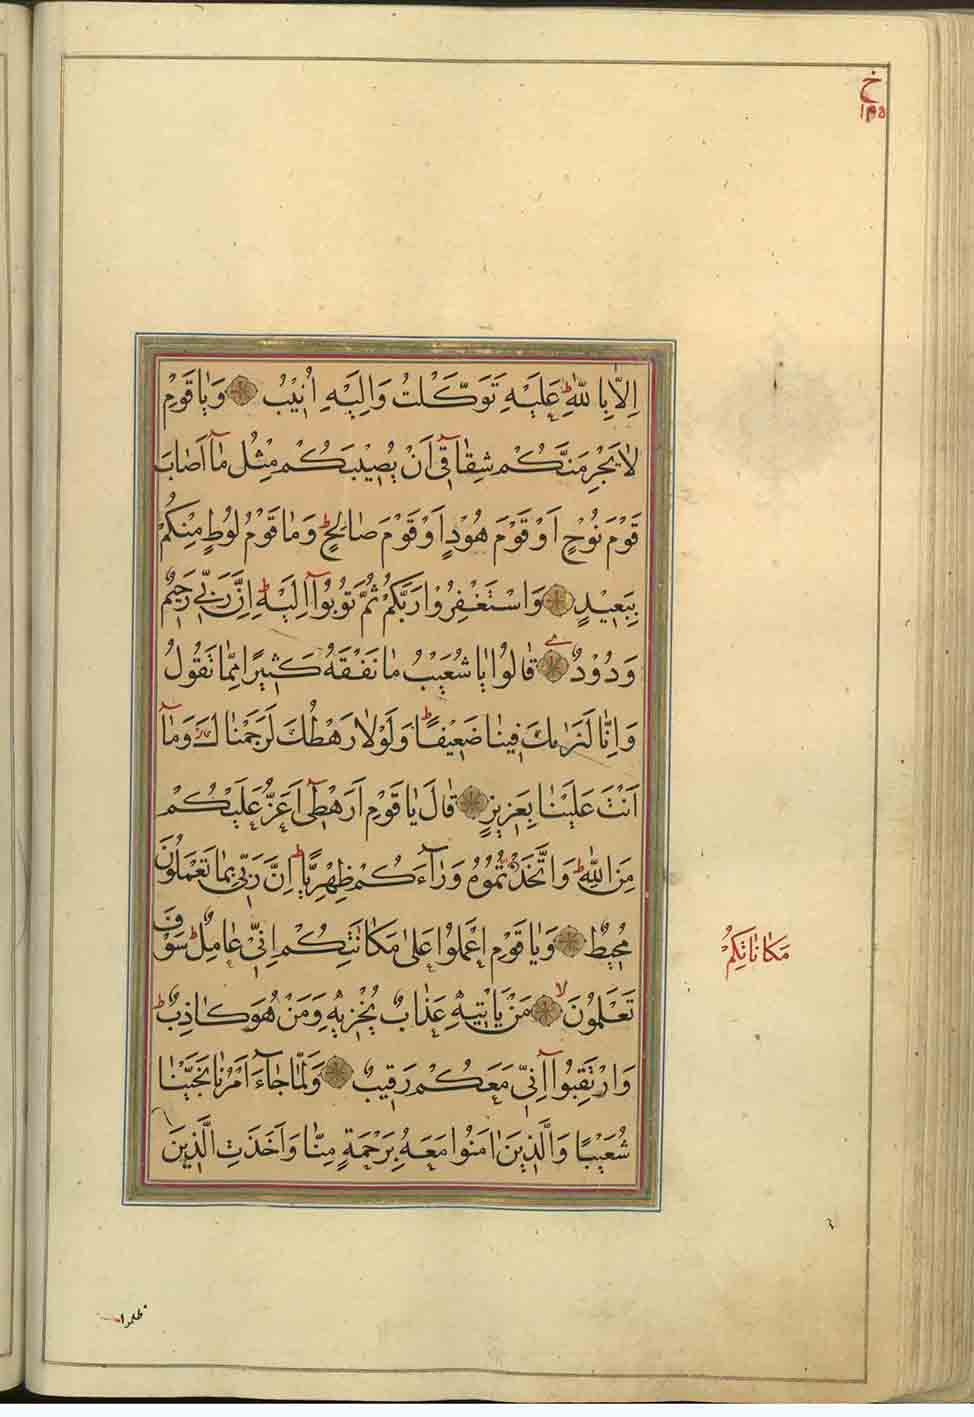 خ
۱۴۵
اِلّٰا بِاللّٰهِ ط عَلَيْهِ تَوَكَّلْتُ وَاِلَيْهِ اُنِيْبُ وَيٰا قَوْمِ
لٰا يَجْرِمَنَّكُمْ شِقٰاقِىٓ اَنْ يُصِيْبَكُمْ مِثْلُ مٰٓا اَصٰابَ
قَوْمَ نُوْحٍ اَوْ قَوْمَ هُوْدٍ اَوْ قَوْمَ صٰالِحٍ ط وَمٰا قَوْمُ لُوْطٍ مِنْكُمْ
بِبَعِيْدٍ وَاسْتَغْفِرُوْا رَبَّكُمْ ثُمَّ تُوْبُوْٓا اِلَيْهِ ط اِنَّ رَبِّى رَحِيْمٌ
وَدُوْدٌ قٰالُوْا يٰا شُعَيْبُ مٰا نَفْقَهُ كَثِيْرًا مِمّٰا تَقُوْلُ
وَاِنّٰا لَنَرٰيكَ فِينٰا ضَعِيْفًا ط وَلَوْلٰا رَهْطُكَ لَرَجَمْنٰاكَ وَمٰٓا
اَنْتَ عَلَيْنٰا بِعَزِيْزٍ قٰالَ يٰا قَوْمِ اَرَهْطِىٓ اَعَزُّ عَلَيْكُمْ
مِنَ اللّٰهِ ط وَاتَّخَذْتُمُوْهُ وَرٰآءَكُمْ ظِهْرِيًّا ط اِنَّ رَبِّى بِمٰا تَعْمَلُوْنَ
مُحِيْطٌ وَيٰا قَوْمِ اعْمَلُوْا عَلىٰ مَكٰانَتِكُمْ اِنِّى عٰامِلٌ ط سَوْفَ
تَعْلَمُوْنَ لا مَنْ يَاْتِيْهِ عَذٰابٌ يُخْزِيْهِ وَمَنْ هُوَ كٰاذِبٌ ط
وَارْتَقِبُوْٓا اِنِّى مَعَكُمْ رَقِيْبٌ وَلَمّٰا جٰٓاءَ اَمْرُنٰا نَجَّيْنٰا
شُعَيْبًا وَالَّذِيْنَ اٰمَنُوْا مَعَهُ بِرَحْمَةٍ مِنّٰا وَاَخَذَتِ الَّذِيْنَ
مَكٰانٰاتِكُمْ
ظلموا